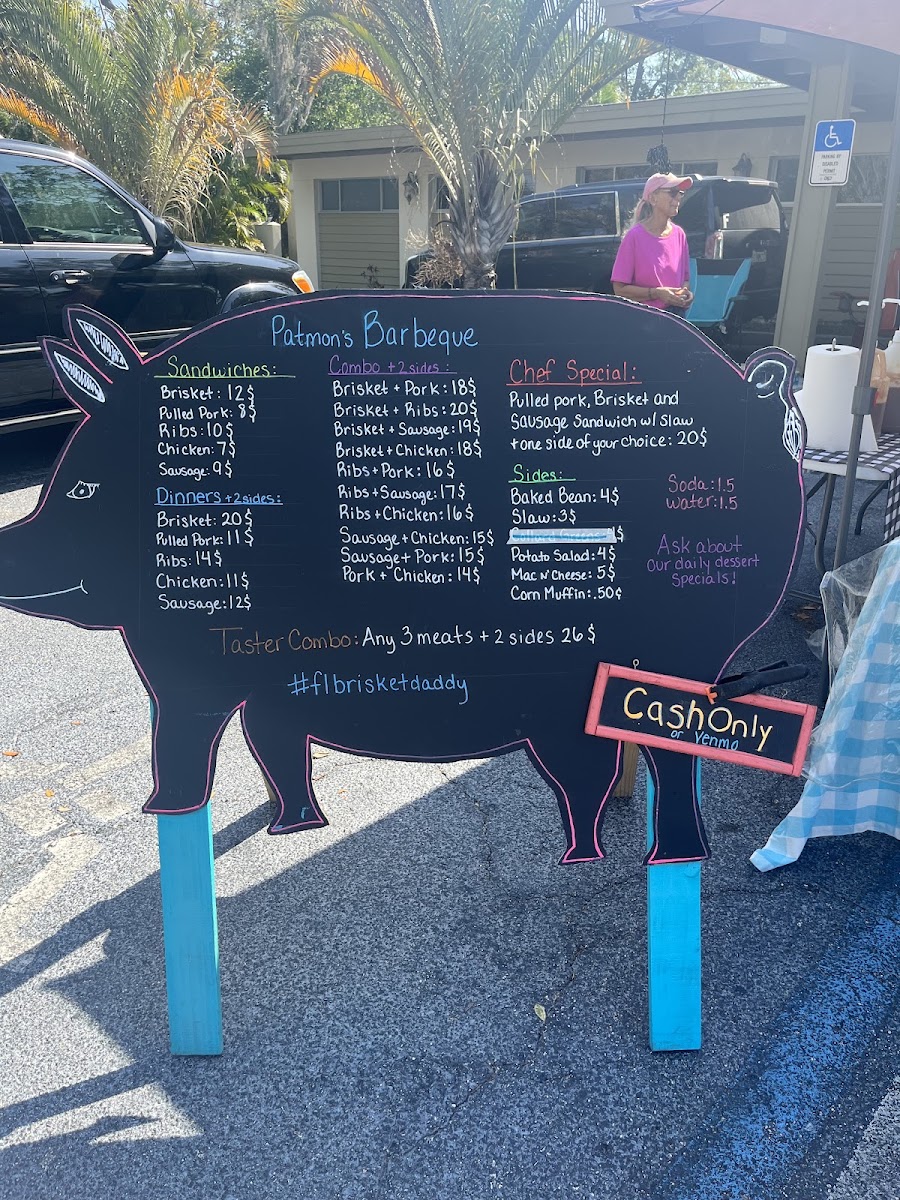 Patmon's Barbeque
Sandwiches:
Brisket: 12$
Pulled Pork: 8$
Ribs: 10$
Chicken: 7$
Sausage: 9$
Dinners +2sides:
Brisket: 20$
Pulled Pork: 11$
Ribs: 14$
Chicken: 11$
Sausage: 12$
Combo +2 sides:
Brisket + Pork: 18$
Brisket + Ribs: 20$
Brisket + Sausage: 19$
Brisket + Chicken: 18$
Ribs + Pork: 16$
Ribs + Sausage: 17$
Ribs + Chicken: 16$
Sausage + Chicken: 15$
Sausage + Pork: 15$
Pork + Chicken: 14$
Chef Special:
Pulled pork, Brisket and
Sausage Sandwich w/ Slaw
+ one side of your choice: 20$
Sides:
Baked Bean: 4$
Slaw: 3$
Potato Salad: 4$
Mac N' Cheese: 5$
Corn Muffin: .50¢
Soda: 1.5
Water: 1.5
Ask about
Our daily dessert
Specials!
Taster Combo: Any 3 meats + 2 sides 26$
#flbrisketdaddy
Cash Only
or Venmo
PARKING BY
DISABLED
PERMIT
ONLY